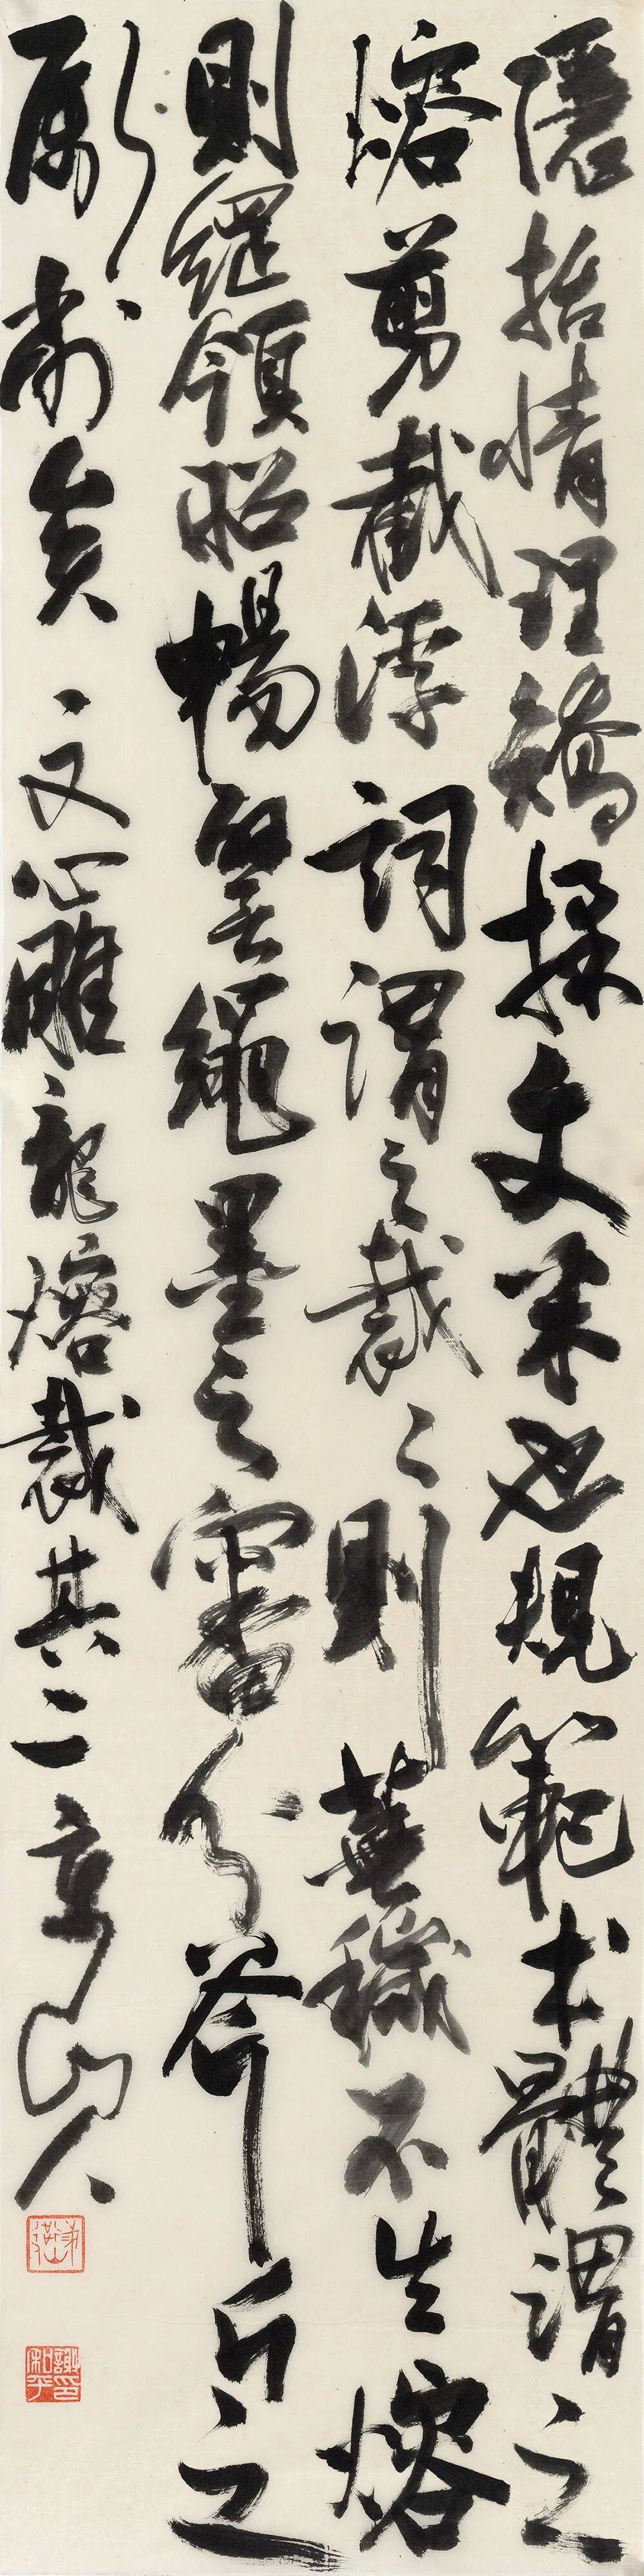 隱括情理矯揉文采也規範本體謂之
熔剪截浮詞謂之裁〻則蕪穢不生熔
則綱領昭暢譬繩墨之審分斧斤之
斲削矣 文心雕龍熔裁其二 京山人
謝印和平